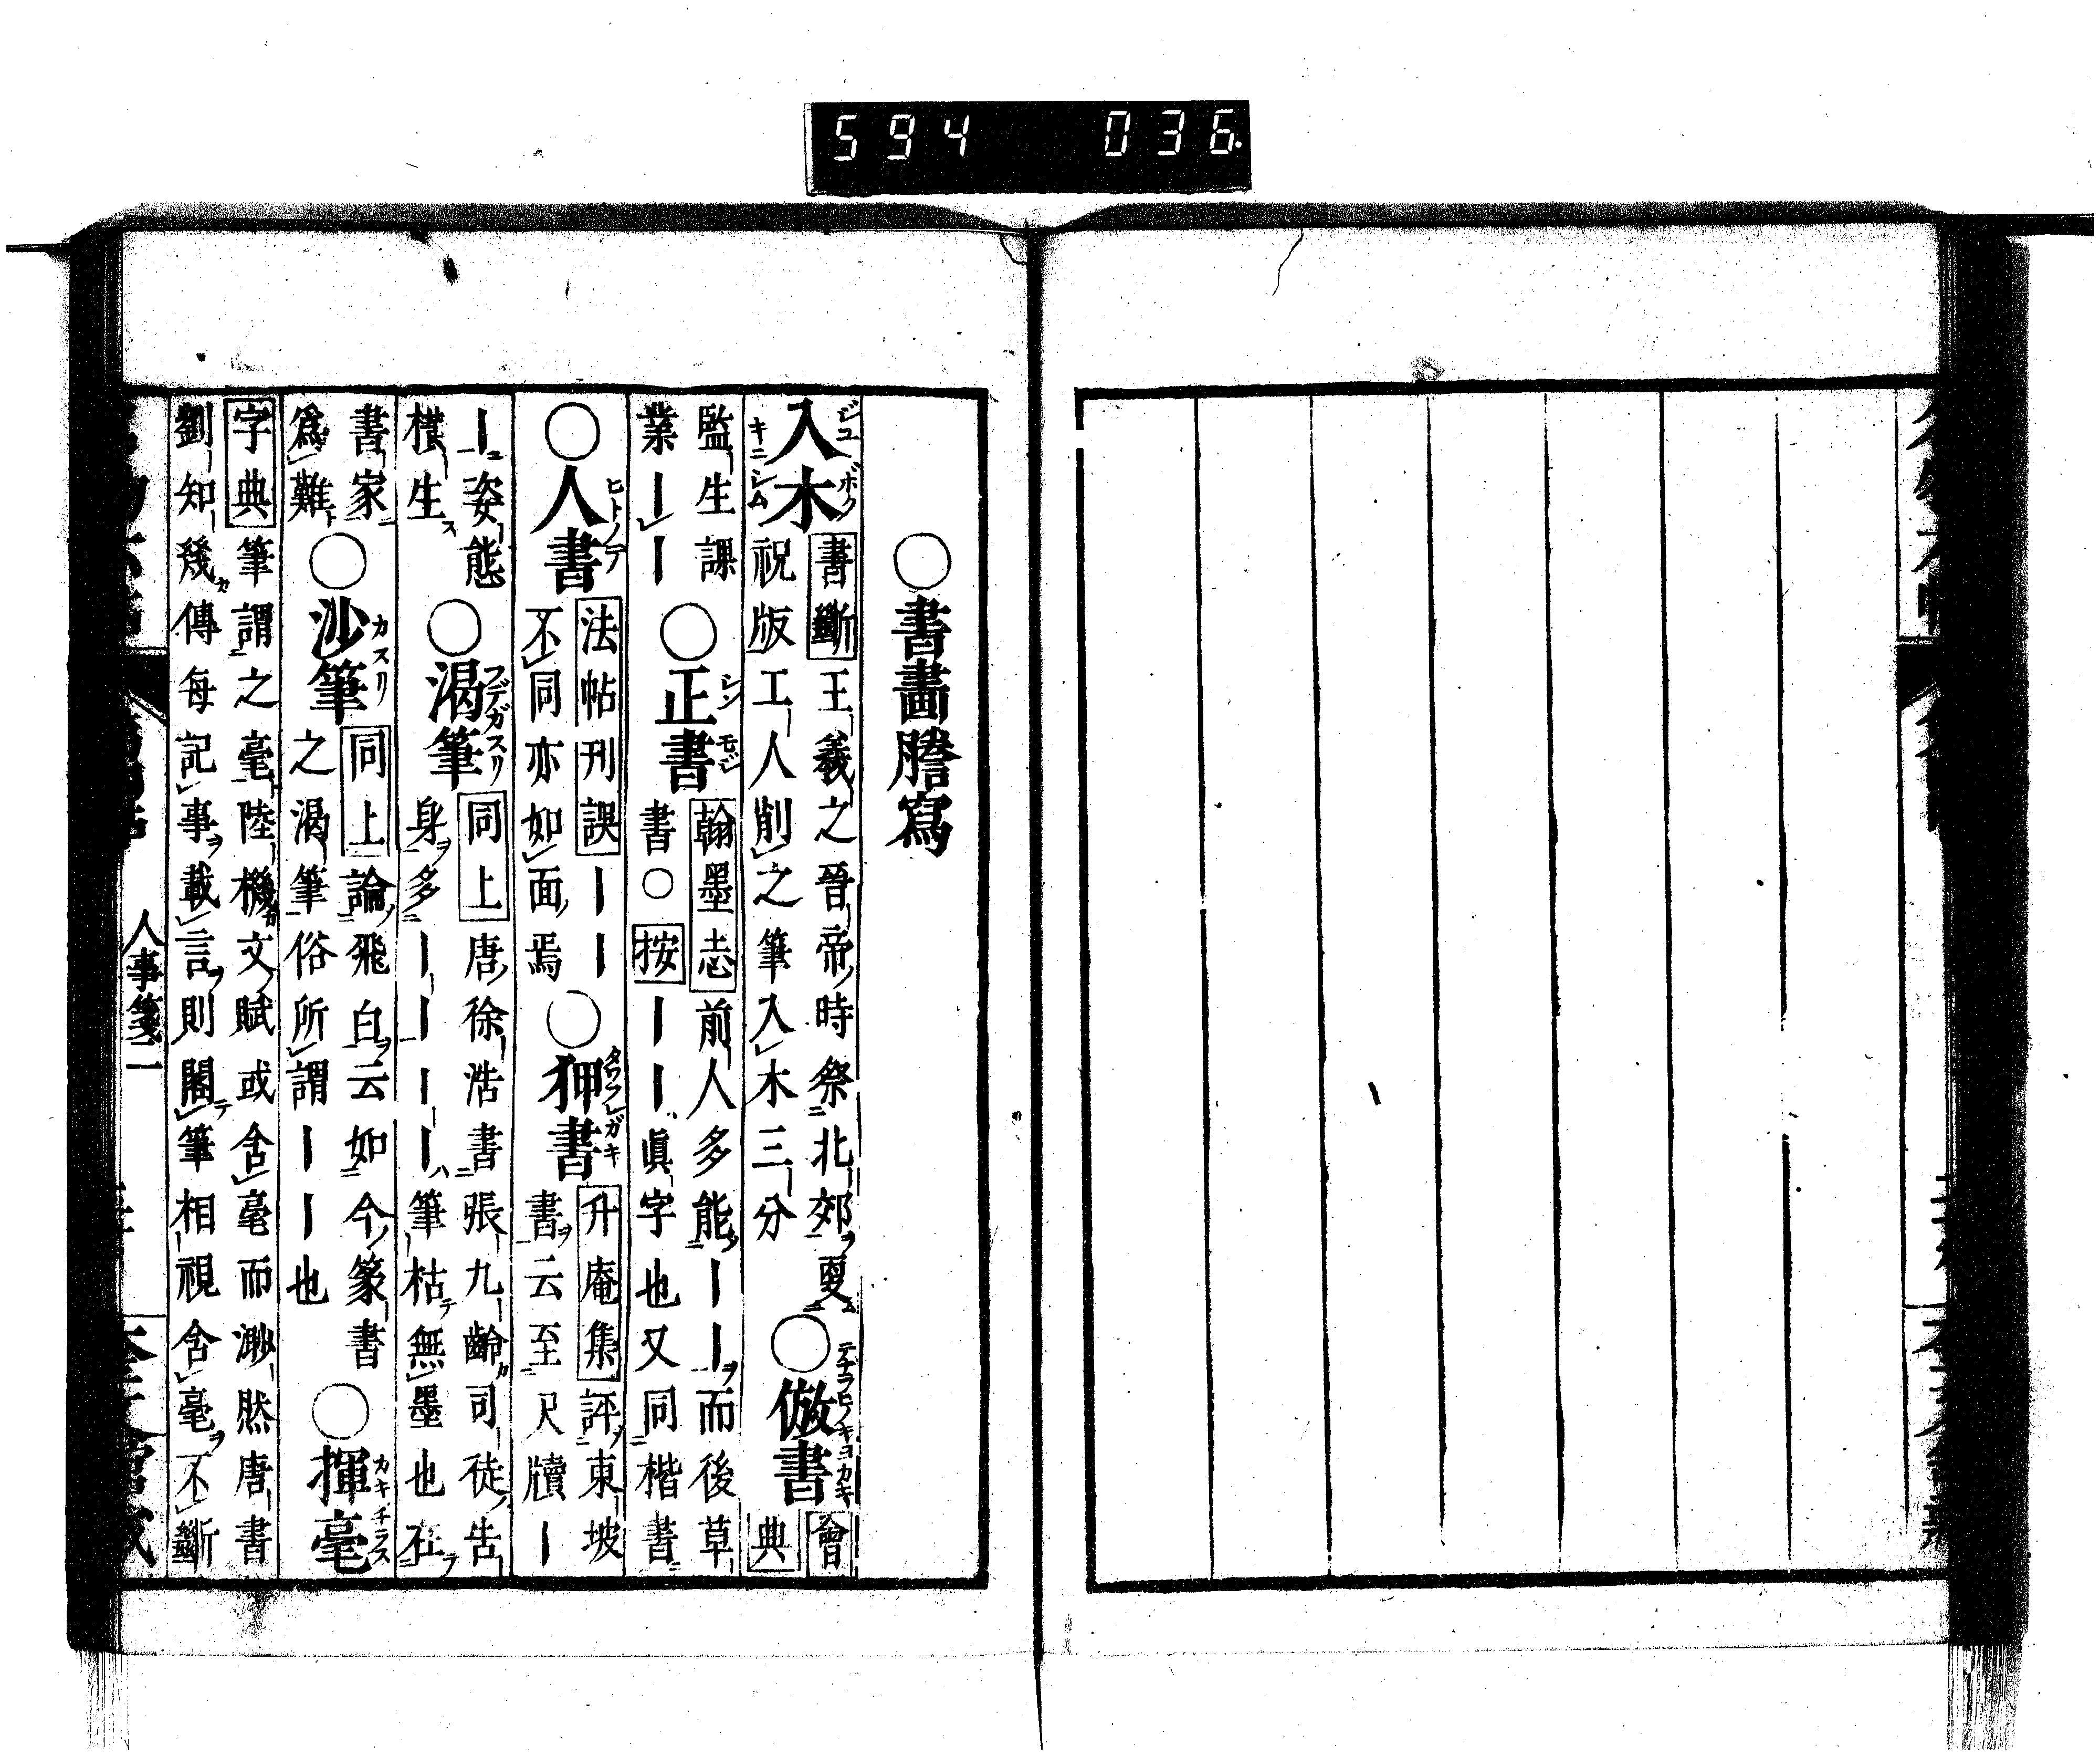 594 036
○書畵謄寫
入木 書斷 王羲之晉帝時祭北郊更
祝版工人削之筆入木三分 ○倣書 會典
監生課業｜｜ ○正書 翰墨志 前人多能｜｜而後草
書○按｜｜眞字也又同楷書
○人書 法帖刊誤｜｜
不同亦如面焉 ○狎書 升庵集 評東坡
書云至尺牘｜
｜姿態橫生 ○渴筆 同上 唐徐浩書張九齡司徒告
身多｜｜｜｜筆枯無墨也在
書家爲難 ○沙筆 同上 論飛白云如今篆書
之渴筆俗所謂｜｜也 ○揮毫
字典 筆謂之毫陸機文賦或含毫而渺然唐書
劉知幾傳每記事載言則閣筆相視含毫不斷
人事箋二